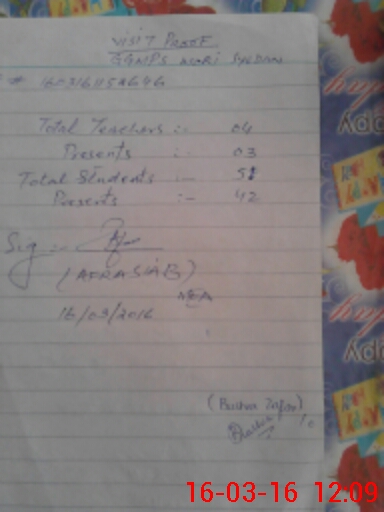 VISIT PROOF
GGMPS NORI SYEDAN
# 160316115A646
Total Teachers :- 04
Presents :- 03
Total Students :- 51
Presents :- 42
Sig :-
(AFRASIAB)
MEA
16/03/2016
(Bushra Zafar)
16-03-16 12:09